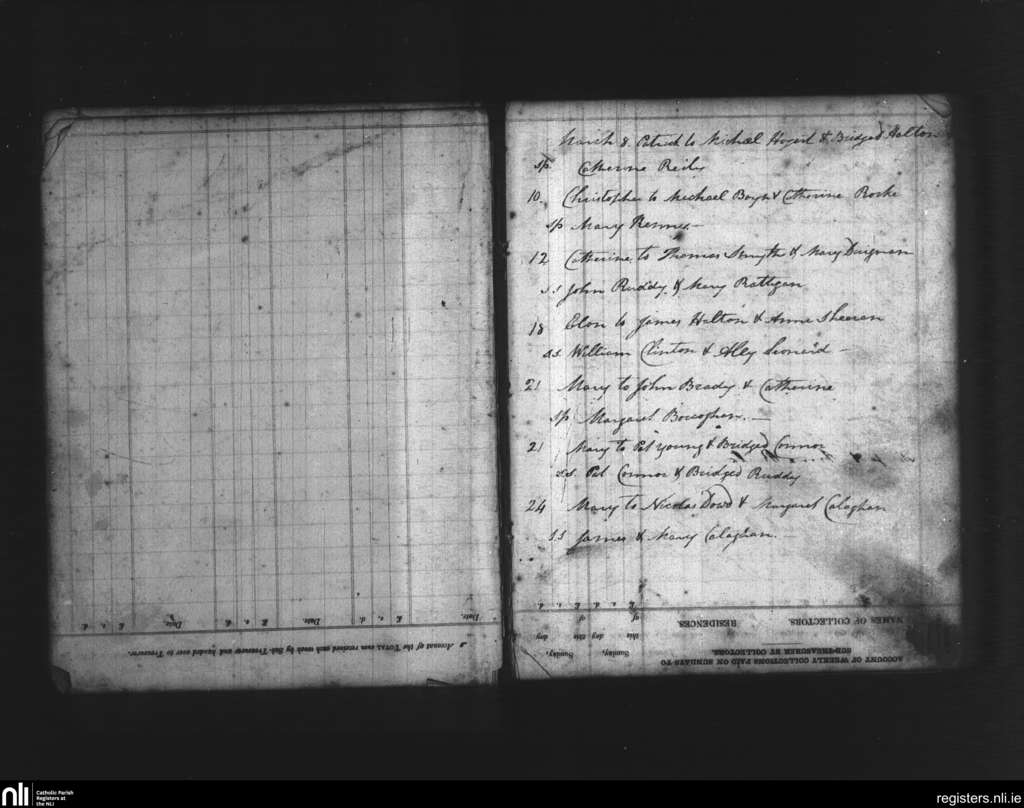 March 8 Patrick to Michael & Bridged Halton
sp Catherine Reily
10 Christopher to Michael & Catherine Rorke
sp Mary
12 Catherine to Thomas Smyth & Mary Duignan
ss John Ruddy & Mary Rattigan
18 to James Halton & Anne Sheeran
ss William Clinton & Aley Leonard
21 Mary to John Brady & Catherine
sp Margaret
21 Mary to Pat Young & Bridged Connor
ss Pat Connor & Bridged Ruddy
24 Mary to Nicolas Dowd & Margaret Calaghan
ss James & Mary Calaghan
ACCOUNT OF WEEKLY COLLECTIONS PAID ON SUNDAYS TO
SUB-TREASURER BY COLLECTORS.
NAMES OF COLLECTORS. RESIDENCES.
Sunday, this day of
Sunday, day of
£ s. d. £ s. d.
Account of the TOTAL sum received each week by Sub-Treasurer and handed over to Treasurer.
Date. £ s. d. Date. £ s. d. Date. £ s. d.
nli Catholic Parish
Registers at
the NLI
registers.nli.ie